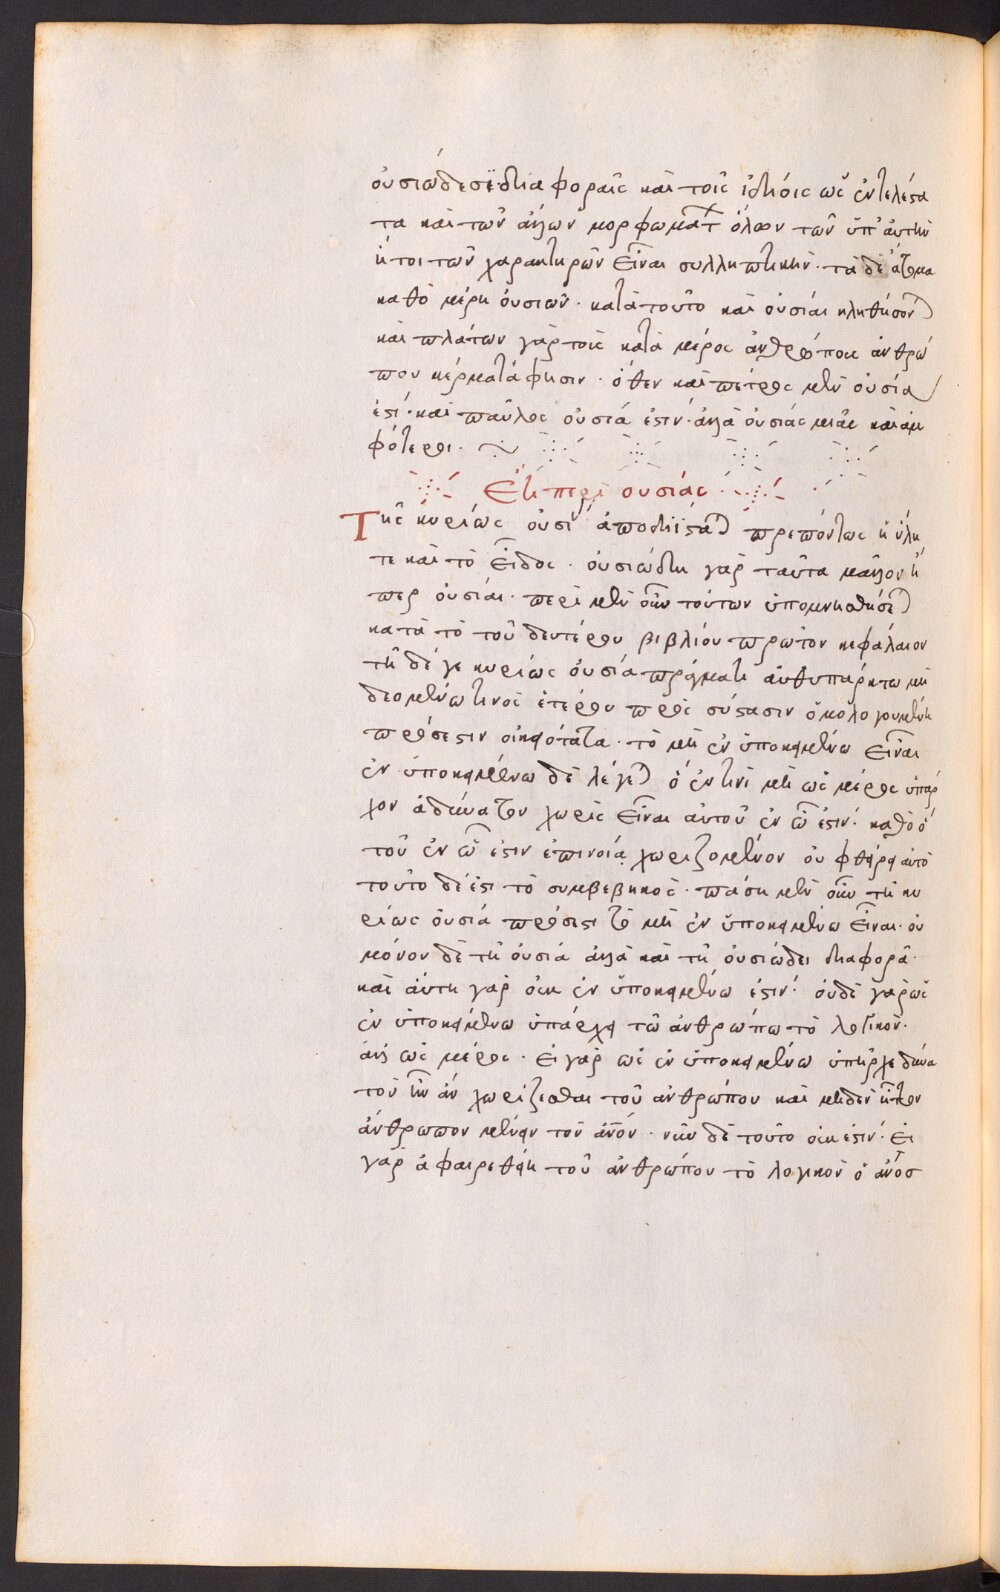 οὐσιώδεσϊ διαφοραῖς καὶ τοῖς ἰδίοις ὡς ἐντελέστα
τα καὶ τῶν ἄλλων μορφωμάτ ὅλων τῶν ὑπ' αὐτὴν
ἤτοι τῶν χαρακτήρων εἶναι συλληπτικήν· τὰ δὲ ἄτομα
καθὸ μέρη οὐσιῶν· κατὰ τοῦτο καὶ οὐσίαι κληθήσον
καὶ πλάτων γὰρ τοὺς κατὰ μέρος ἀνθρώπους ἀνθρώ
που κέρματά φησιν· ὅθεν καὶ πέτρος μὲν οὐσία
ἐστί· καὶ παῦλος οὐσιά ἐστιν· ἀλλὰ οὐσίας μιᾶς καὶ ἀμ
φότεροι·
Ετι περὶ ουσίας·
Της κυρίως οὐσί ἀποδιίστα πρεπόντως ἡ ὕλη
τε καὶ τὸ εἶδος· οὐσιώδη γὰρ ταῦτα μᾶλλον ἤ
περ οὐσίαι· περὶ μὲν οὖν τούτων ὑπομνησθήσε
κατὰ τὸ τοῦ δευτέρου βιβλίου πρῶτον κεφάλαιον
τῆ δέ γε κυρίως οὐσία πράγματι αὐθυπάρκτω μὴ
δεομένω τινὸς ἑτέρου πρὸς σύστασιν ὁμολογουμένη
πρόσεστιν οἰκειότατα· τὸ μὴ ἐν ὑποκειμένω εἶναι
ἐν ὑποκειμένω δὲ λέγε ὅ ἐν τινὶ μὴ ὡς μέρος ὑπάρ
χον ἀδύνατον χωρὶς εἶναι αὐτοῦ ἐν ὧ ἐστιν· καθὸ ὅ
τοῦ ἐν ὧ ἐστιν ἐπινοία χωριζομένον οὐ φθείρει αὐτὸ
τοῦτο δέ ἐστι τὸ συμβεβηκός· πάση μὲν οὖν τῆ κυ
ρίως οὐσία πρόσεστι τὸ μὴ ἐν ὑποκειμένω εἶναι· οὐ
μόνον δὲ τῆ οὐσία ἀλλὰ καὶ τῆ οὐσιώδει διαφορᾶ·
καὶ αὕτη γὰρ οὐκ ἐν ὑποκειμένω ἐστίν· οὐδὲ γὰρ ὡς
ἐν ὑποκειμένω ὑπάρχει τῶ ἀνθρώπω τὸ λογικὸν·
ἀλλ ὡς μέρος· εἰ γὰρ ὡς ἐν ὑποκειμένω ὑπῆρχε δυνα
τὸν ἦν ἂν χωρίζεσθαι τοῦ ἀνθρώπου καὶ μηδὲν ἧττον
ἄνθρωπον μένειν τὸν ἄνον· νῦν δὲ τοῦτο οὐκ ἐστίν· εἰ
γὰρ ἀφαιρεθείη τοῦ ἀνθρώπου τὸ λογικὸν ὁ ἄνοσ